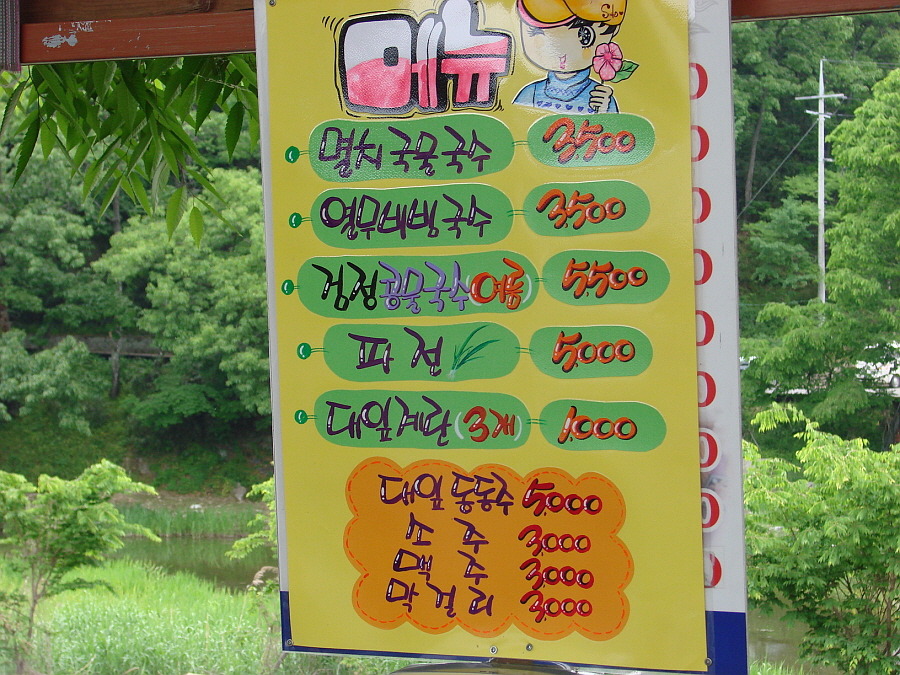 메뉴
멸치국물국수 3,500
열무비빔국수 3,500
검정콩물국수(여름) 5,500
파전 5,000
대잎계란(3개) 1,000
대잎동동주 5,000
소주 3,000
맥주 3,000
막걸리 3,000